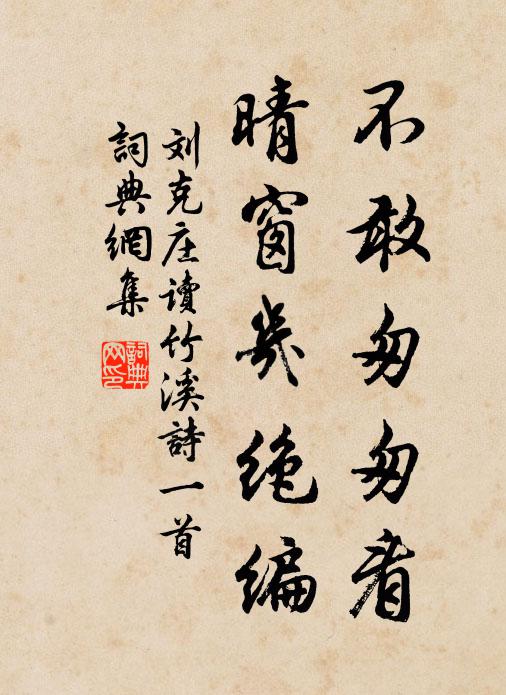 不敢匆匆看
晴窗幾绝编
刘克庄读竹溪詩一首
詞典網集
詞典網印